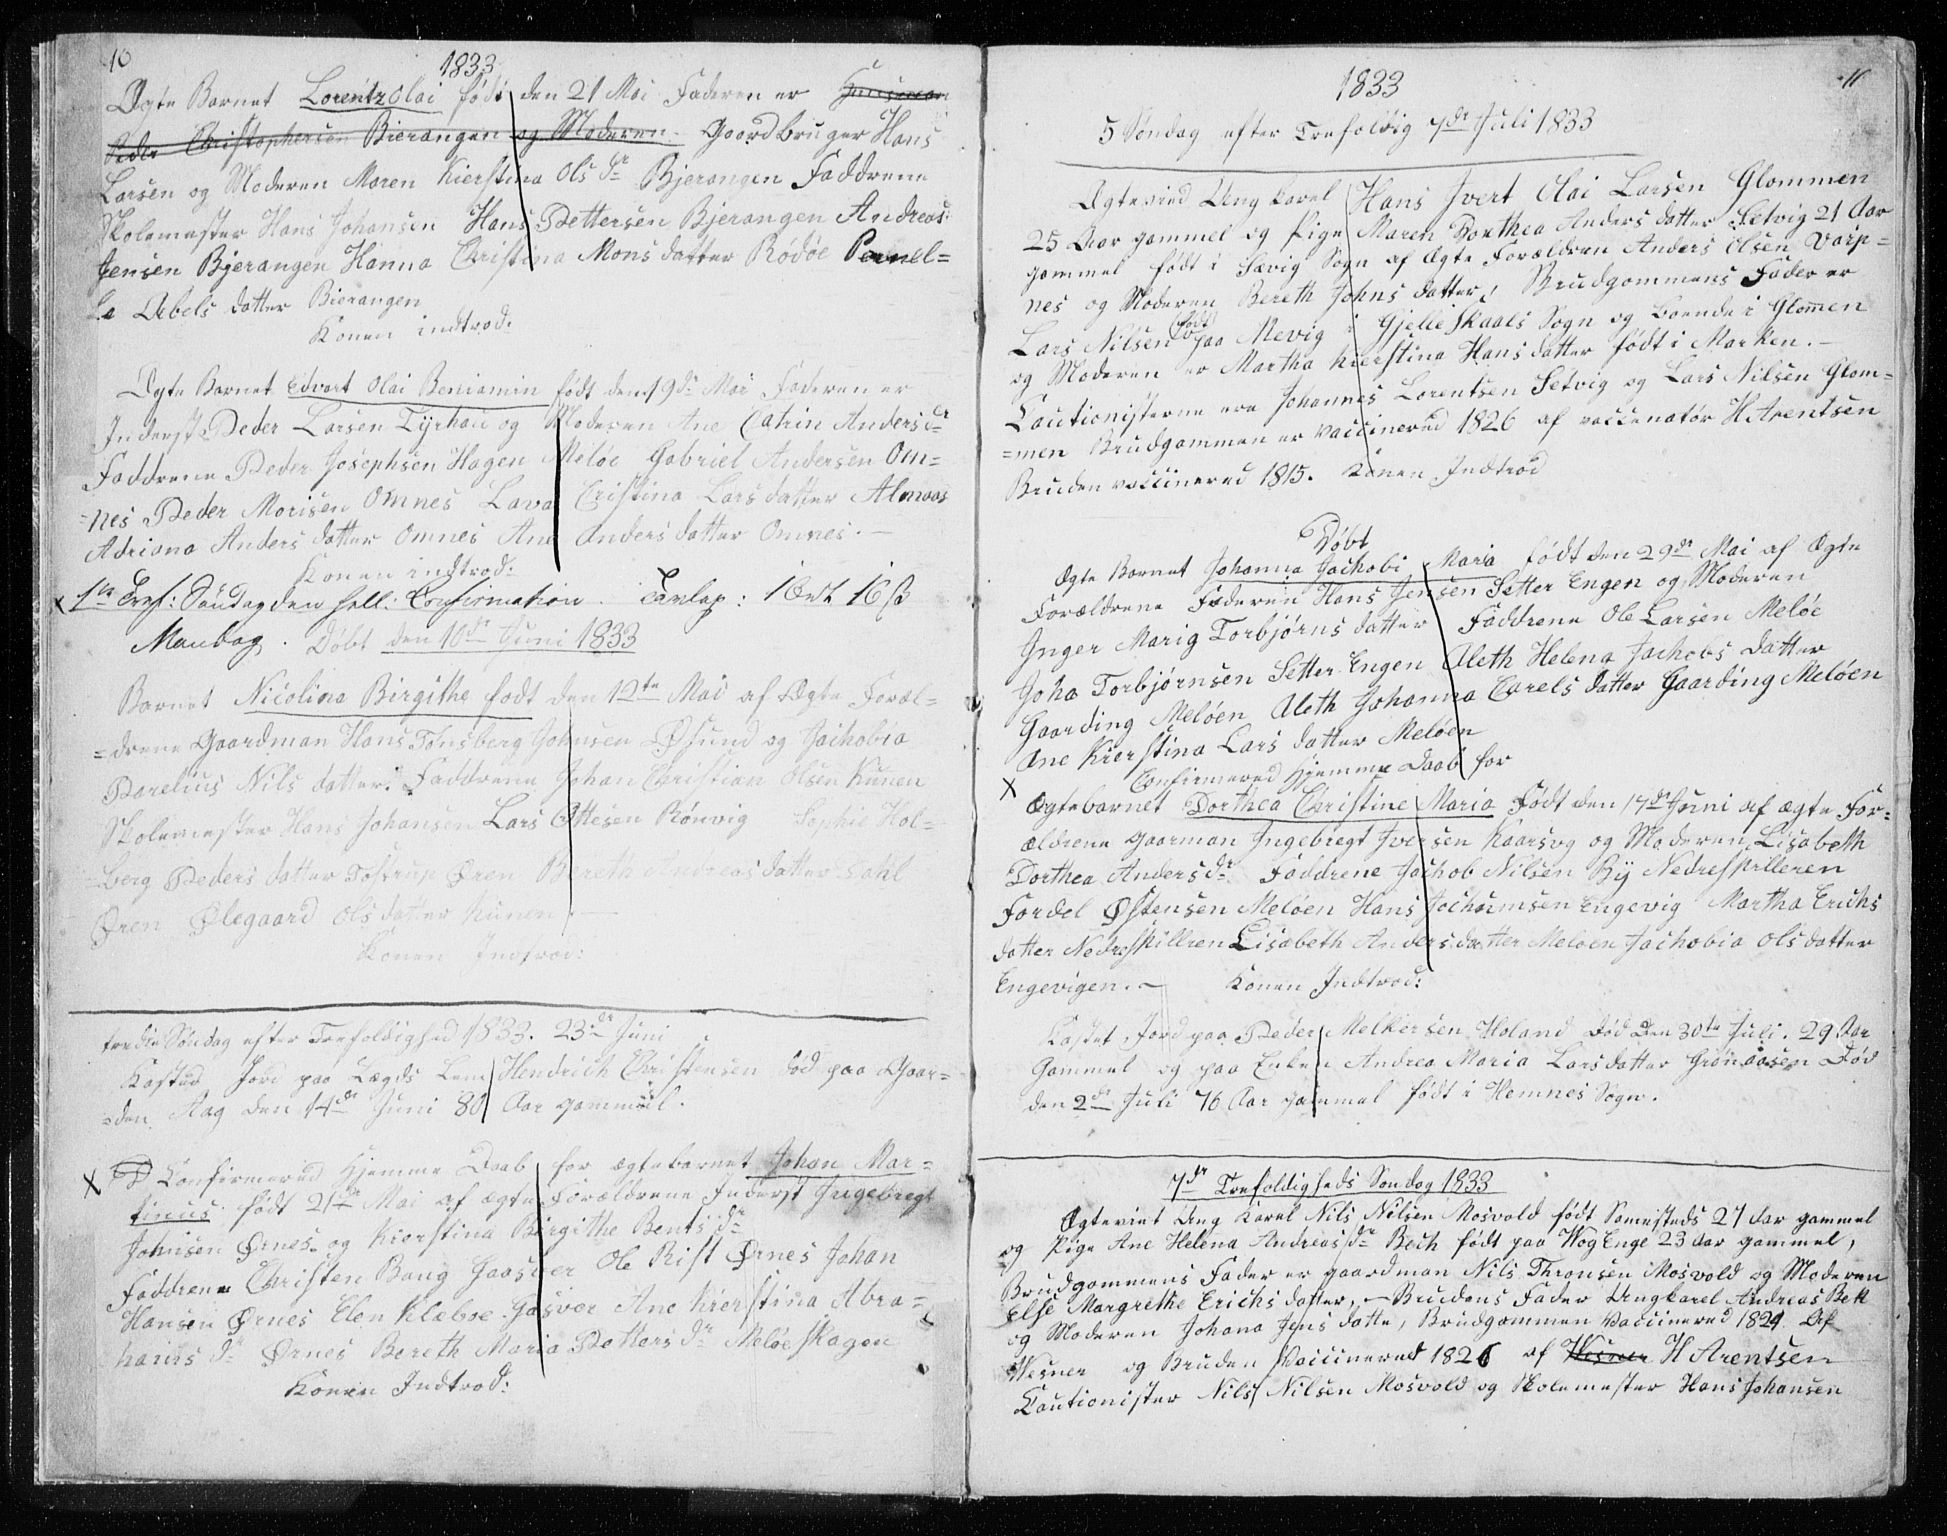 10
1833
Ægte Barnet Lorentz Olai født den 21 Mai Faderen er Huusmand
Peder Christophersen Bierangen og Moderen Gaardbruger Hans
Larsen og Moderen Maren Kierstina Ols dr Bjerangen Faddrene
Skolemester Hans Johansen Hans Pettersen Bjerangen Andreas
Jensen Bjerangen Hanna Christina Mons datter Rödöe Pernel=
le Abels datter Bierangen
Konen indtrod.
Ægte Barnet Edvart Olai Beniamin født den 19de Mai Faderen er
Inderst Peder Larsen Tyrhau og Moderen Ane Catrin Anders dr
Faddrene Peder Josephsen Hagen Meløe Gabriel Andersen Om=
=nes Peder Morisen Omnes Lava Cristina Lars datter Almaas
Adriana Anders datter Omnes Ane Anders datter Omnes. —
Konen indtrod:
x 1ste Tref: Søndag den hell: Confirmation. Tavlep: 1 Ort 16 ß
Mandag. Døbt den 10de Juni 1833
Barnet Nicolina Birgithe født den 12te Mai af Ægte Foræl=
=drene Gaardman Hans Tønsberg Johnsen Øsund og Jachobia
Parelius Nils datter. Faddrene Johan Christian Olsen Kunen
Skolemester Hans Johansen Lars Ottesen Rönvig Sophie Hol=
berg Peders datter Øren Bereth Andreas datter Dahl
Øren Ølegaard Ols datter Kunen. —
Konen Indtrod:
tredie Søndag efter Trefoldighed 1833. 23de Juni
Kasted Jord paa Lægds Lem Hendrich Christensen død paa Gaar=
=den Aag den 14de Juni 80 Aar gammel.
x Confirmered Hjemme Daab for ægtebarnet Johan Mar=
tinus født 21de Mai af ægte Forældrene Inderst Ingebregt
Johnsen Ørnes og Kierstina Birgithe Bents dr
Faddrene Christen Bang Gaasvær Ole Rist Ørnes Johan
Hansen Ørnes Elen Klæboe Gasver Ane Kierstina Abra=
hams dr Ørnes Bereth Maria Petters dr Meløe skagen
Konen Indtrod:
11
1833
5 Søndag efter Trefoldig 7de Juli 1833
Ægtevied Ung karel Hans Ivert Olai Larsen Glommen
25 Aar gammel og Pige Maren Dorthea Anders datter Setvig 21 Aar
gammel født i Sævig Sogn af Ægte Forældren Anders Olsen Varp=
nes og Moderen Bereth Johns datter, Brudgommens Fader er
Lars Nilsen (født) paa Nevig i Gjelleskaals Sogn og boende i Glomen
og Moderen er Martha Kierstina Hans datter født i Marken. —
Cautionisterne ere Johannes Lorentsen Setvig og Lars Nilsen Glom=
=men Brudgommen er vaccinered 1826 af vaccenatør H Arentsen
Bruden vaccinered 1815. Konen Indtrod
Døbt
Ægte Barnet Johanna Jachobi Maria født den 29de Mai af Ægte
Forældrene Faderen Hans Jensen Setter Engen og Moderen
Inger Marig Torbjørns datter Faddrene Ole Larsen Meløe
Joha Torbjørnsen Setter Engen Aleth Helena Jachobs datter
Gaarding Meløen Aleth Johanna Carels datter Gaarding Meløen
Ane Kierstina Lars datter Meløen
Confirmered Hjemme Daab for
x Ægtebarnet Dorthea Christine Maria Født den 17de Juni af ægte For=
ældrene Gaarman Ingebregt Iversen Kaarsvg og Moderen Lisabeth
Dorthea Anders dr Faddrene Jachob Nilsen By Nedreskilleren
Fordel Østensen Meløen Hans Jochumsen Engevig Martha Erichs
datter Nedreskillren Lisabeth Anders datter Meløen Jachobia Ols datter
Engevigen. — Konen Indtrod:
Kastet Jord paa Peder Melkersen Holand Død Den 30te Juli. 29 Aar
Gammel og paa Enken Andrea Maria Lars datter Grønaasen Død
den 2de Juli 76 Aar gammel født i Hemnes Sogn.
7de Trefoldigheds Søndag 1833
Ægteviet Ung Karel Nils Nilsen Mosvold født Samesteds 27 Aar gammel
og Pige Ane Helena Andreas dr Bech født paa Wog Enge 23 Aar gammel,
Brudgommens Fader er gaardman Nils Thronsen Mosvold og Moderen
Else Margrethe Erichs datter, — Brudens Fader Ungkarel Andreas Bek
og Moderen Johana Jens datte, Brudgommen Vaccinered 1824 Af
Wesner og Bruden Vaccineret 1826 af Wesner H Arentsen
Cautionister Nils Nilsen Mosvold og Skolemester Hans Johansen